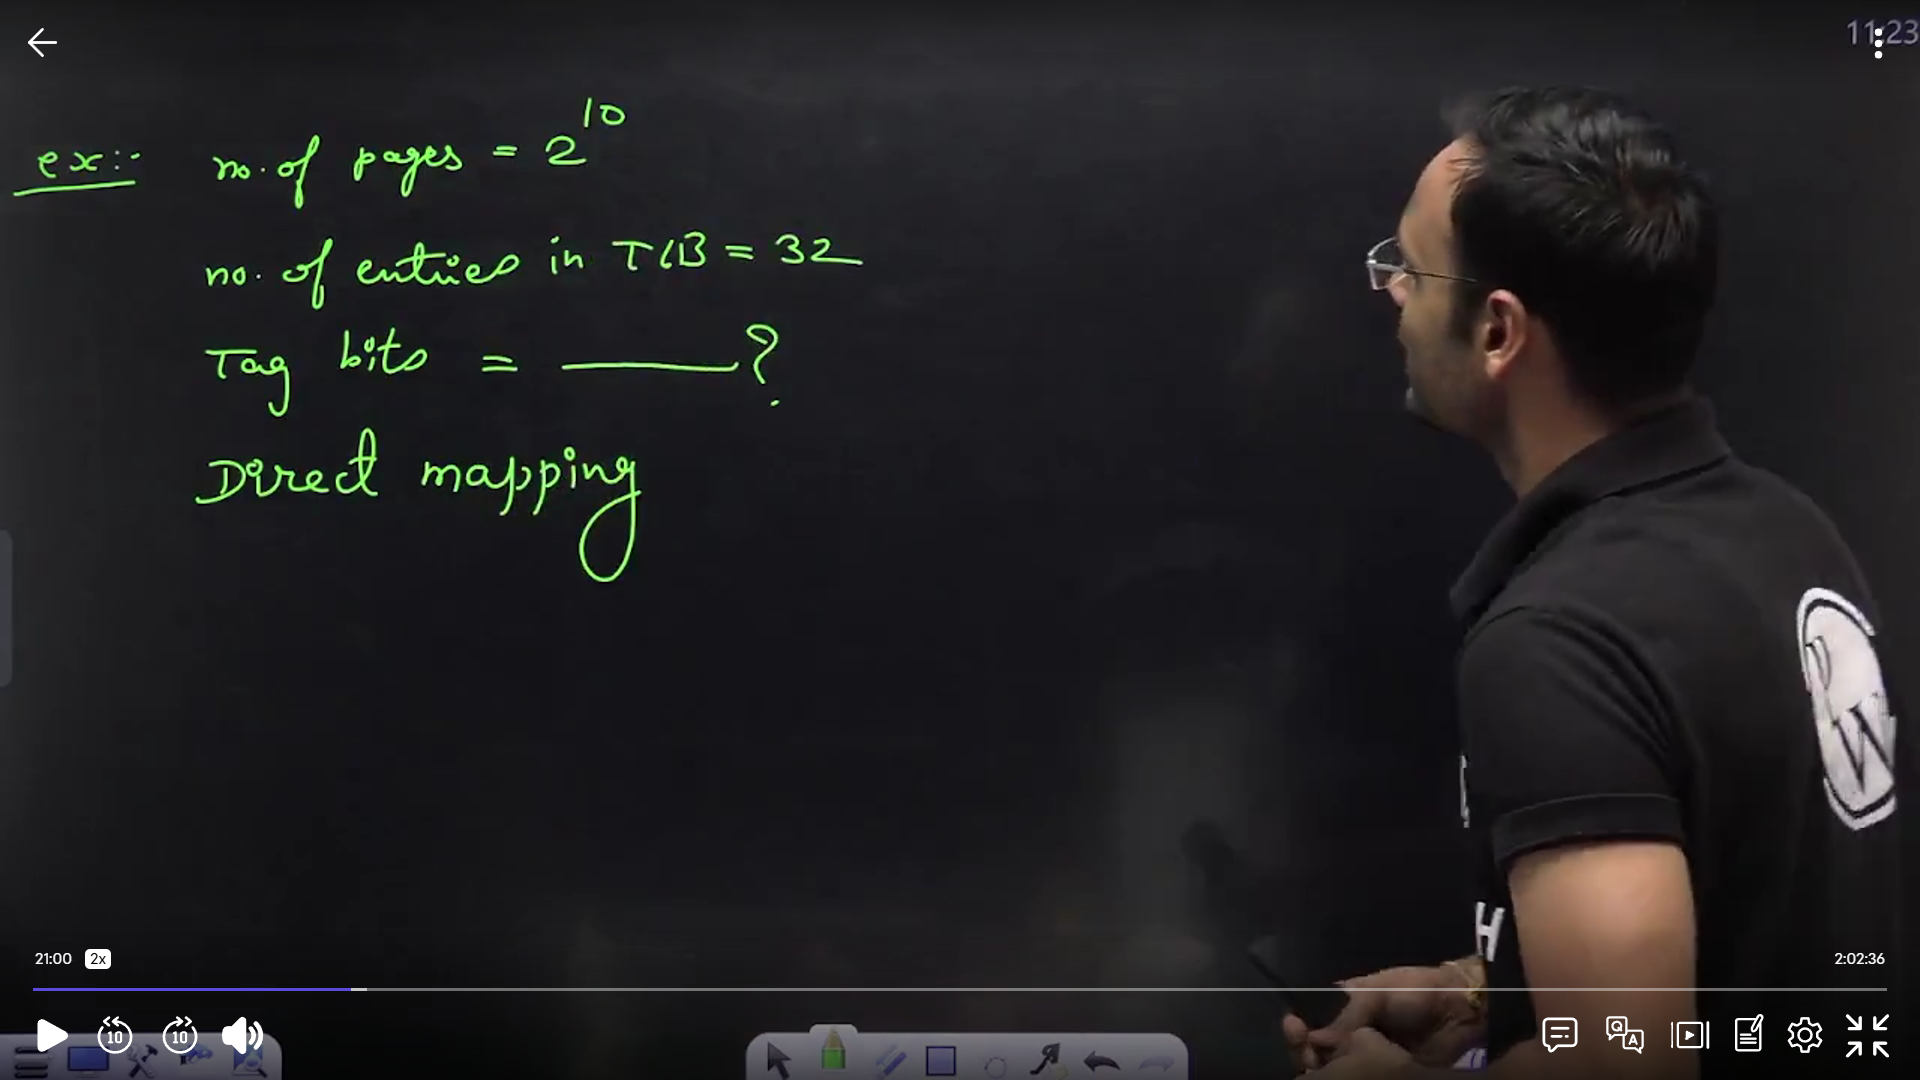 11:23
ex:- no. of pages = 2^10
no. of entries in TLB = 32
Tag bits = ______ ?
Direct mapping
PW
H
21:00 2x
2:02:36
10 10
Q A